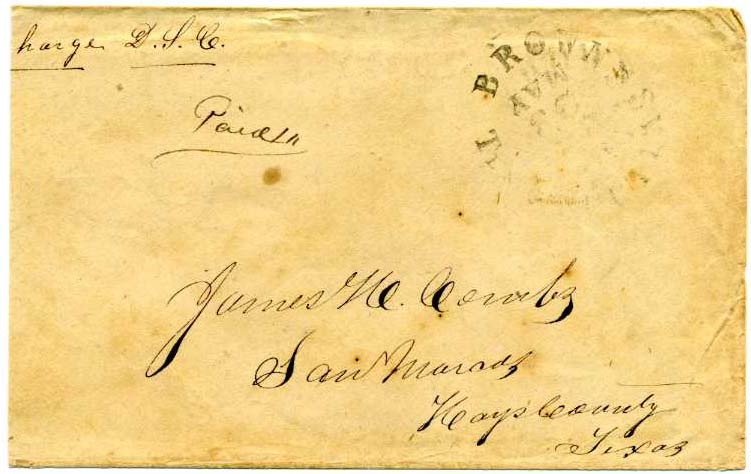 harge D. S. C.
BROWNSVILL
MAY
Paid
James H. Combs
San Marcos
Hays County
Texas